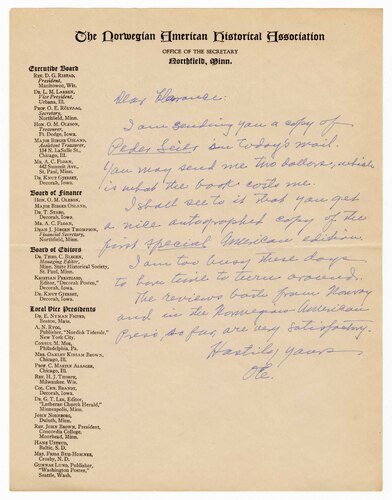 The Norwegian American Historical Association
OFFICE OF THE SECRETARY
Northfield, Minn.
Executive Board
Rev. D. G. Ristad,
President,
Manitowoc, Wis.
Dr. L. M. Larson,
Vice President,
Urbana, Ill.
Prof. O. E. Rölvaag,
Secretary,
Northfield, Minn.
Hon. O. M. Oleson,
Treasurer,
Ft. Dodge, Iowa.
Major Birger Osland,
Assistant Treasurer,
134 N. LaSalle St.,
Chicago, Ill.
Mr. A. C. Floan,
442 Summit Ave.,
St. Paul, Minn.
Dr. Knut Gjerset,
Decorah, Iowa.
Board of Finance
Hon. O. M. Oleson,
Major Birger Osland,
Dr. T. Stabo,
Decorah, Iowa.
Mr. A. C. Floan,
Dean J. Jørgen Thompson,
Financial Secretary,
Northfield, Minn.
Board of Editors
Dr. Theo. C. Blegen,
Managing Editor,
Minn. State Historical Society,
St. Paul, Minn.
Kristian Prestgard,
Editor, "Decorah Posten",
Decorah, Iowa.
Dr. Knut Gjerset,
Decorah, Iowa.
Local Vice Presidents
Dr. E. Nyman Figved,
Boston, Mass.
A. N. Rygg,
Publisher, "Nordisk Tidende",
New York City.
Consul M. Moe,
Philadelphia, Pa.
Mrs. Oakley Kissam Brown,
Chicago, Ill.
Prof. C. Martin Alsager,
Chicago, Ill.
Rev. H. J. Thorpe,
Milwaukee, Wis.
Chr. Chr. Brandt,
Decorah, Iowa.
Dr. G. T. Lee, Editor,
"Lutheran Church Herald",
Minneapolis, Minn.
John Norberg,
Duluth, Minn.
Rev. John Brown, President,
Concordia College,
Moorhead, Minn.
Hans Ustrud,
Baltic, S. D.
Mrs. Frida Bue-Homnes,
Crosby, N. D.
Gunnar Lund, Publisher,
"Washington Posten",
Seattle, Wash.
Dear Clarence:
I am sending you a copy of
Peder Seier on today's mail.
You may send me two dollars, which
is what the book costs me.
I shall see to it that you get
a nice autographed copy of the
first special American edition.
I am too busy these days
to have time to turn around.
The reviews both from Norway
and in the Norwegian American
Press, so far, are very satisfactory.
Hastily yours
O.E.